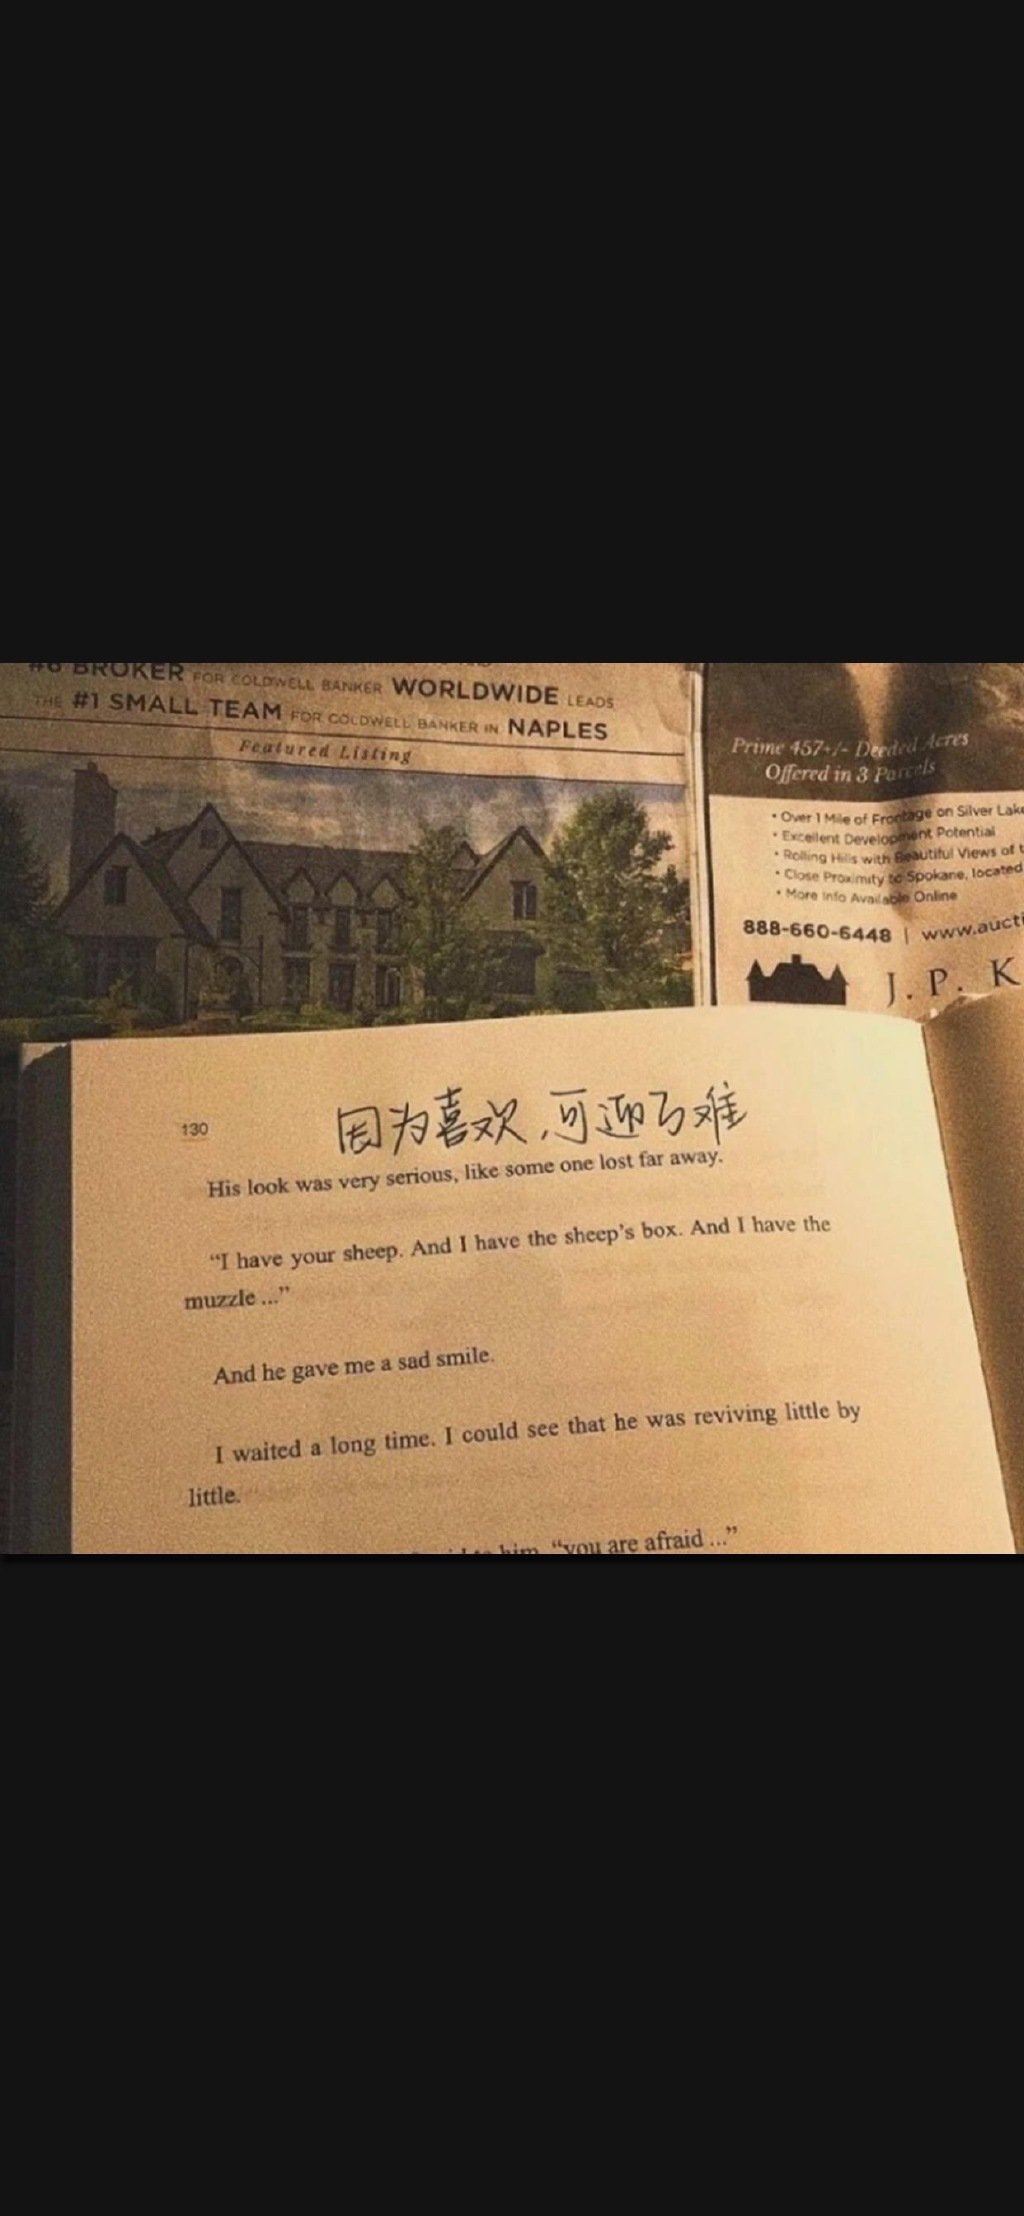 #6 BROKER FOR COLDWELL BANKER WORLDWIDE LEADS
THE #1 SMALL TEAM FOR COLDWELL BANKER IN NAPLES
Featured Listing
Prime 457+/- Deeded Acres
Offered in 3 Parcels
• Over 1 Mile of Frontage on Silver Lake
• Excellent Development Potential
• Rolling Hills with Beautiful Views of
• Close Proximity to Spokane, located
• More Info Available Online
888-660-6448 | www.aucti
J. P. K
130
因为喜欢,可迎万难
His look was very serious, like some one lost far away.
“I have your sheep. And I have the sheep’s box. And I have the
muzzle ...”
And he gave me a sad smile.
I waited a long time. I could see that he was reviving little by
little.
to him, “you are afraid ...”